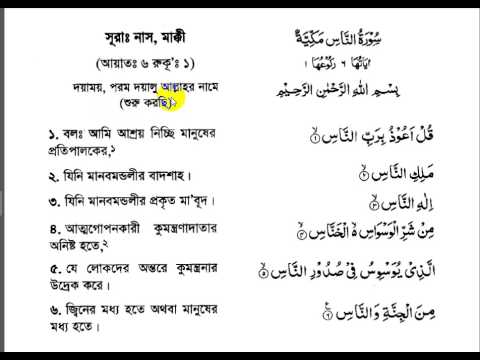 সূরাঃ নাস, মাক্কী
(আয়াতঃ ৬ রুকূ'ঃ ১)
দয়াময়, পরম দয়ালু আল্লাহর নামে
(শুরু করছি)
১. বলঃ আমি আশ্রয় নিচ্ছি মানুষের
প্রতিপালকের,১
২. যিনি মানবমন্ডলীর বাদশাহ।
৩. যিনি মানবমন্ডলীর প্রকৃত মা'বূদ।
৪. আত্মগোপনকারী কুমন্ত্রণাদাতার
অনিষ্ট হতে,২
৫. যে লোকদের অন্তরে কুমন্ত্রনার
উদ্রেক করে।
৬. জ্বিনের মধ্য হতে অথবা মানুষের
মধ্য হতে।
سُوْرَةُ النَّاسِ مَكِّيَّةٌ
اٰيَاتُهَا ٦ رُكُوْعُهَا ١
بِسْمِ اللّٰهِ الرَّحْمٰنِ الرَّحِيْمِ
قُلْ اَعُوْذُ بِرَبِّ النَّاسِ ۝١
مَلِكِ النَّاسِ ۝٢
اِلٰهِ النَّاسِ ۝٣
مِنْ شَرِّ الْوَسْوَاسِ ەۙ الْخَنَّاسِ ۝٤
الَّذِىْ يُوَسْوِسُ فِىْ صُدُوْرِ النَّاسِ ۝٥
مِنَ الْجِنَّةِ وَالنَّاسِ ۝٦